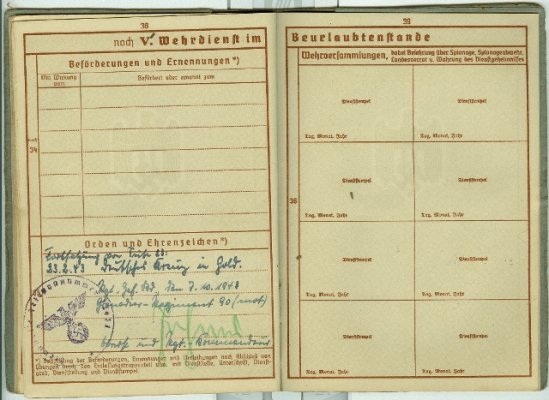 38
noch V. Wehrdienst im
Beförderungen und Ernennungen*)
Mit Wirkung von:
Befördert oder ernannt zum
noch
34
Orden und Ehrenzeichen*)
Fortsetzung von Seite
23.2.43 Deutsches Kreuz in Gold.
Rgt. Gef. Std. den 7.10.1943
Grenadier-Regiment 90 (mot)
Oberst und Rgt.-Kommandeur
*) Bestätigung der Beförderungen, Ernennungen und Verleihungen nach Abschluß von
Übungen durch den Entlassungstruppenteil usw. mit Dienststelle, Unterschrift, Dienst-
grad, Dienststellung und Dienststempel
39
Beurlaubtenstande
Wehrversammlungen, dabei Belehrung über Spionage, Spionageabwehr,
Landesverrat u. Wahrung des Dienstgeheimnisses
Dienststempel
Dienststempel
Tag, Monat, Jahr
Tag, Monat, Jahr
Dienststempel
Dienststempel
Tag, Monat, Jahr
Tag, Monat, Jahr
36
Dienststempel
Dienststempel
Tag, Monat, Jahr
Tag, Monat, Jahr
Dienststempel
Dienststempel
Tag, Monat, Jahr
Tag, Monat, Jahr